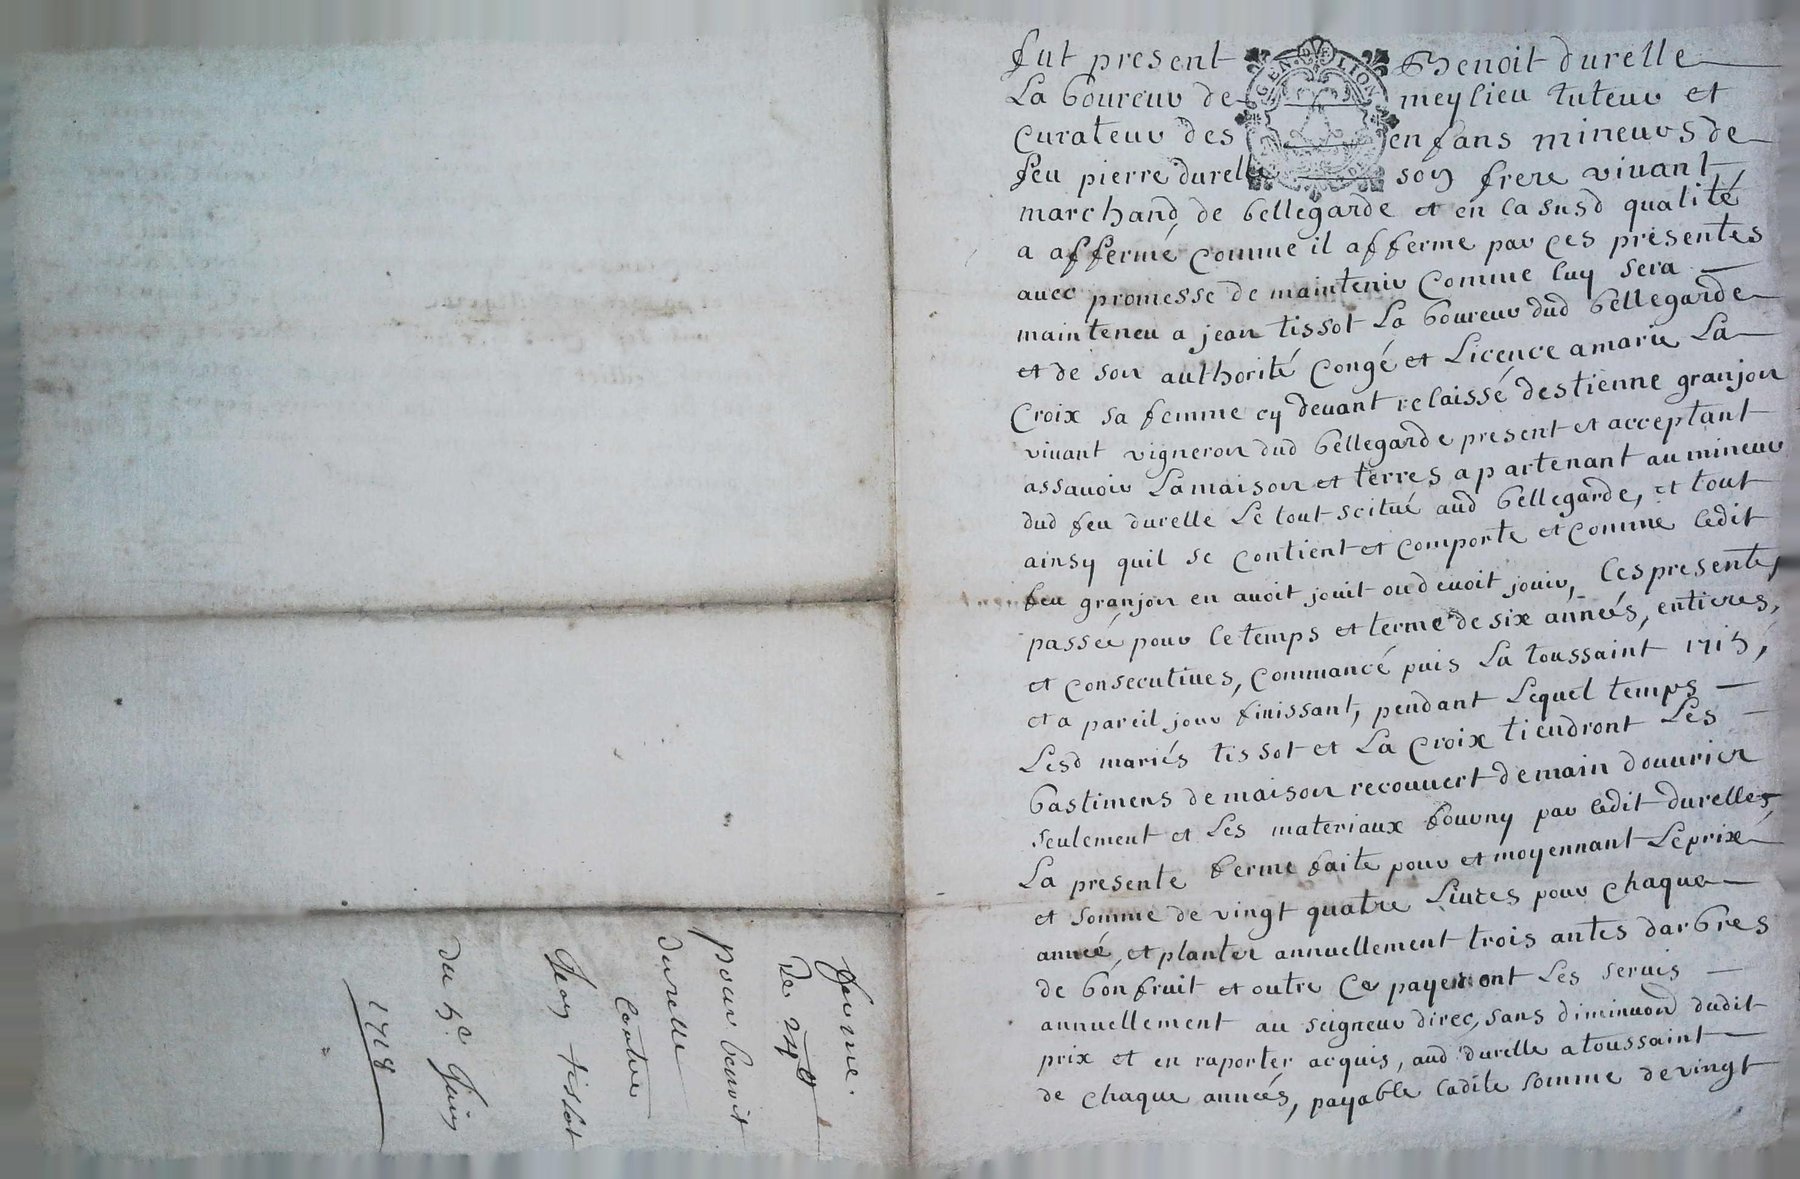 ferme.
De 24#
pour benoit
durelle
Contre
Jean tissot
du 5e Juin
1718
fut present Benoit durelle
GEN. DE LION
La boureur de meylieu tuteur et
curateur des enfans mineurs de
feu pierre durelle son frere vivant
marchand de bellegarde et en la susd qualité
a affermé comme il afferme par ces présentes
avec promesse de maintenir comme luy sera
mainteneu a jean tissot La boureur dud bellegarde
et de son authorité congé et Licence a marie La
Croix sa femme cy devant relaissé destienne granjon
vivant vigneron dud bellegarde present et acceptant
assavoir La maison et terres apartenant au mineur
dud feu durelle Le tout scitué aud bellegarde, et tout
ainsy quil se contient et comporte et comme ledit
feu granjon en avoit jouit ou devoit jouir, Ces presente
passée pour le temps et terme de six années, entieres,
et consecutives, commancé puis La toussaint 1715,
et a pareil jour finissant, pendant Lequel temps
Lesd mariés tissot et La Croix tiendront Les
bastimens de maison recouvert de main douvrier
seulement et Les materiaux fourny par ledit durelle,
La presente ferme faite pour et moyennant Le prix
et somme de vingt quatre Livres pour chaque
année, et planter annuellement trois antes darbres
de bon fruit et outre Ce payeront Les servis
annuellement au seigneur direc, sans diminuon dudit
prix et en raporter acquis, aud durelle a toussaint
de chaque années, payable ladite somme de vingt